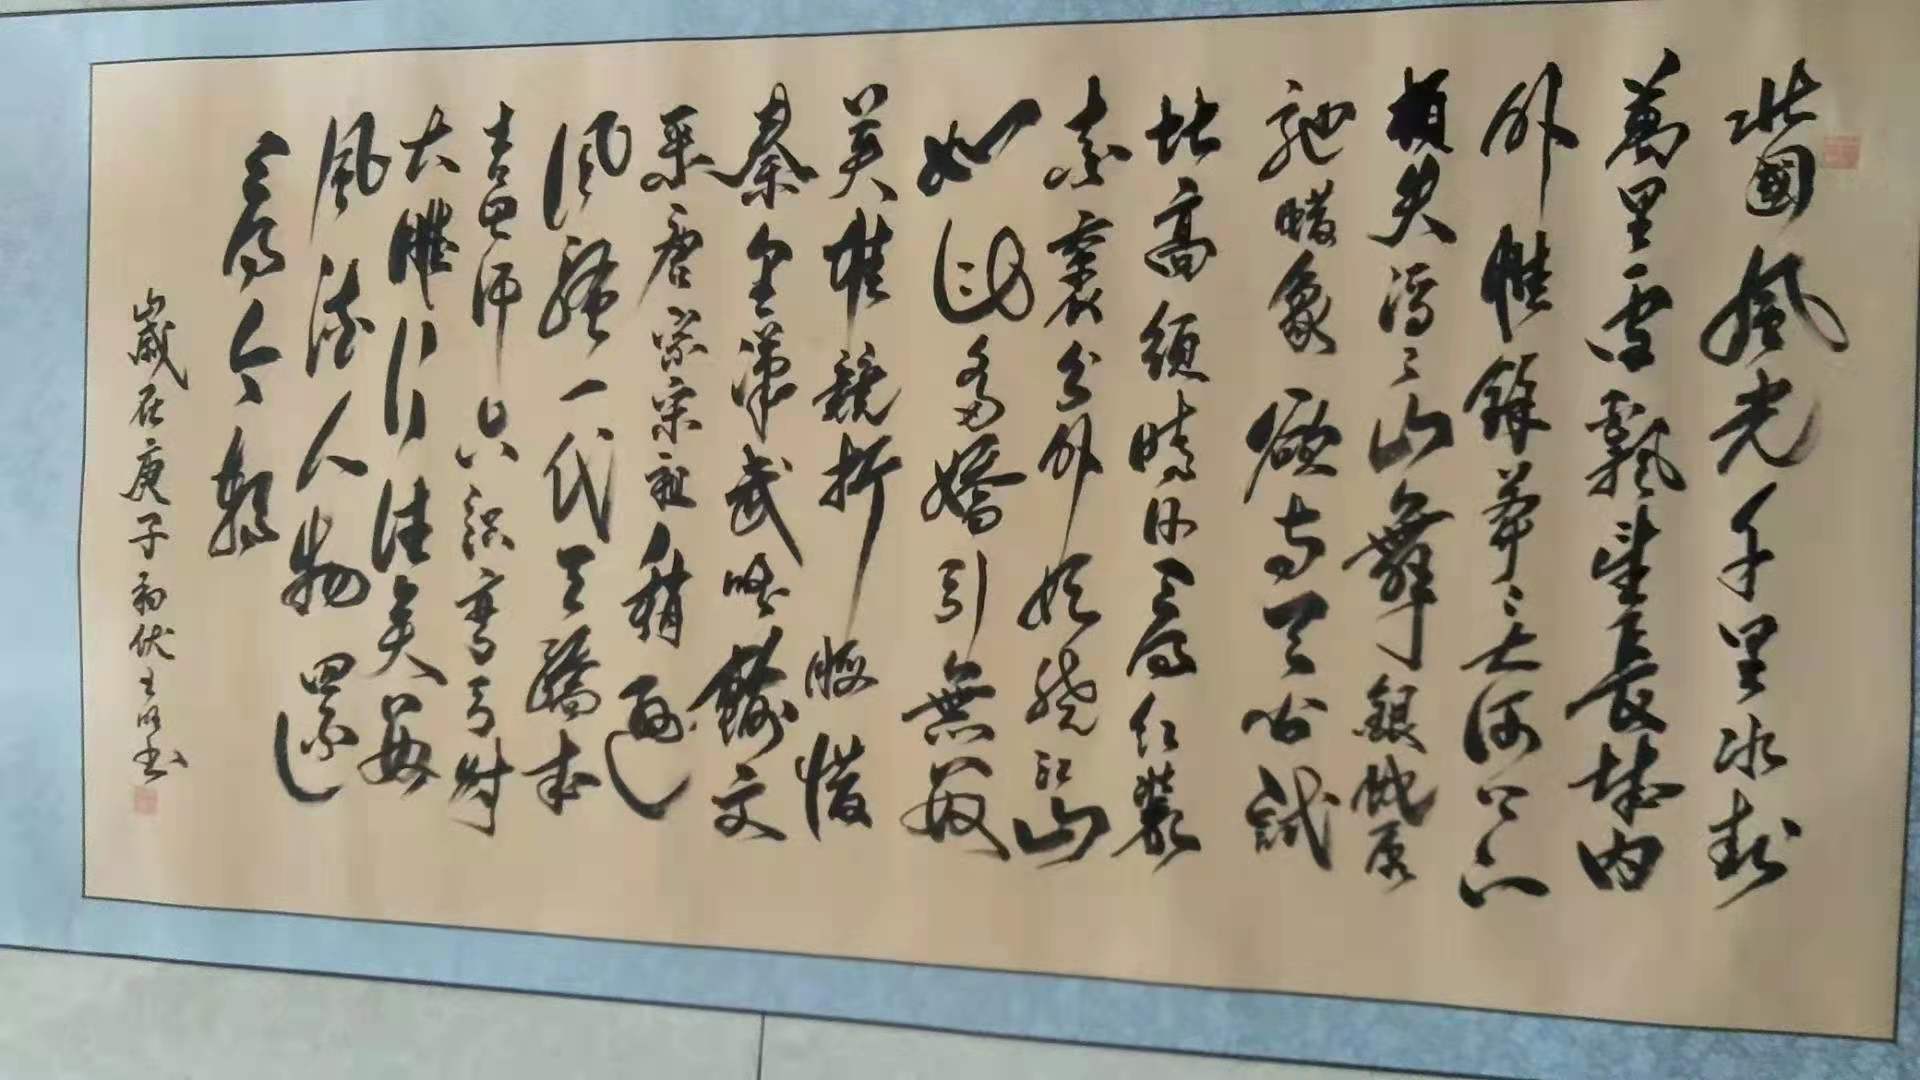 北國風光千里冰封
萬里雪飄望長城內
外惟餘莽〻大河上下
頓失滔〻山舞銀蛇原
馳蠟象欲與天公試
比高須晴日看紅裝
素裹分外妖嬈江山
如此多嬌引無數
英雄競折腰惜
秦皇漢武略輸文
采唐宗宋祖稍遜
風騷一代天驕成
吉思汗只識彎弓射
大雕俱往矣數
風流人物還
看今朝
歲在庚子初伏王书